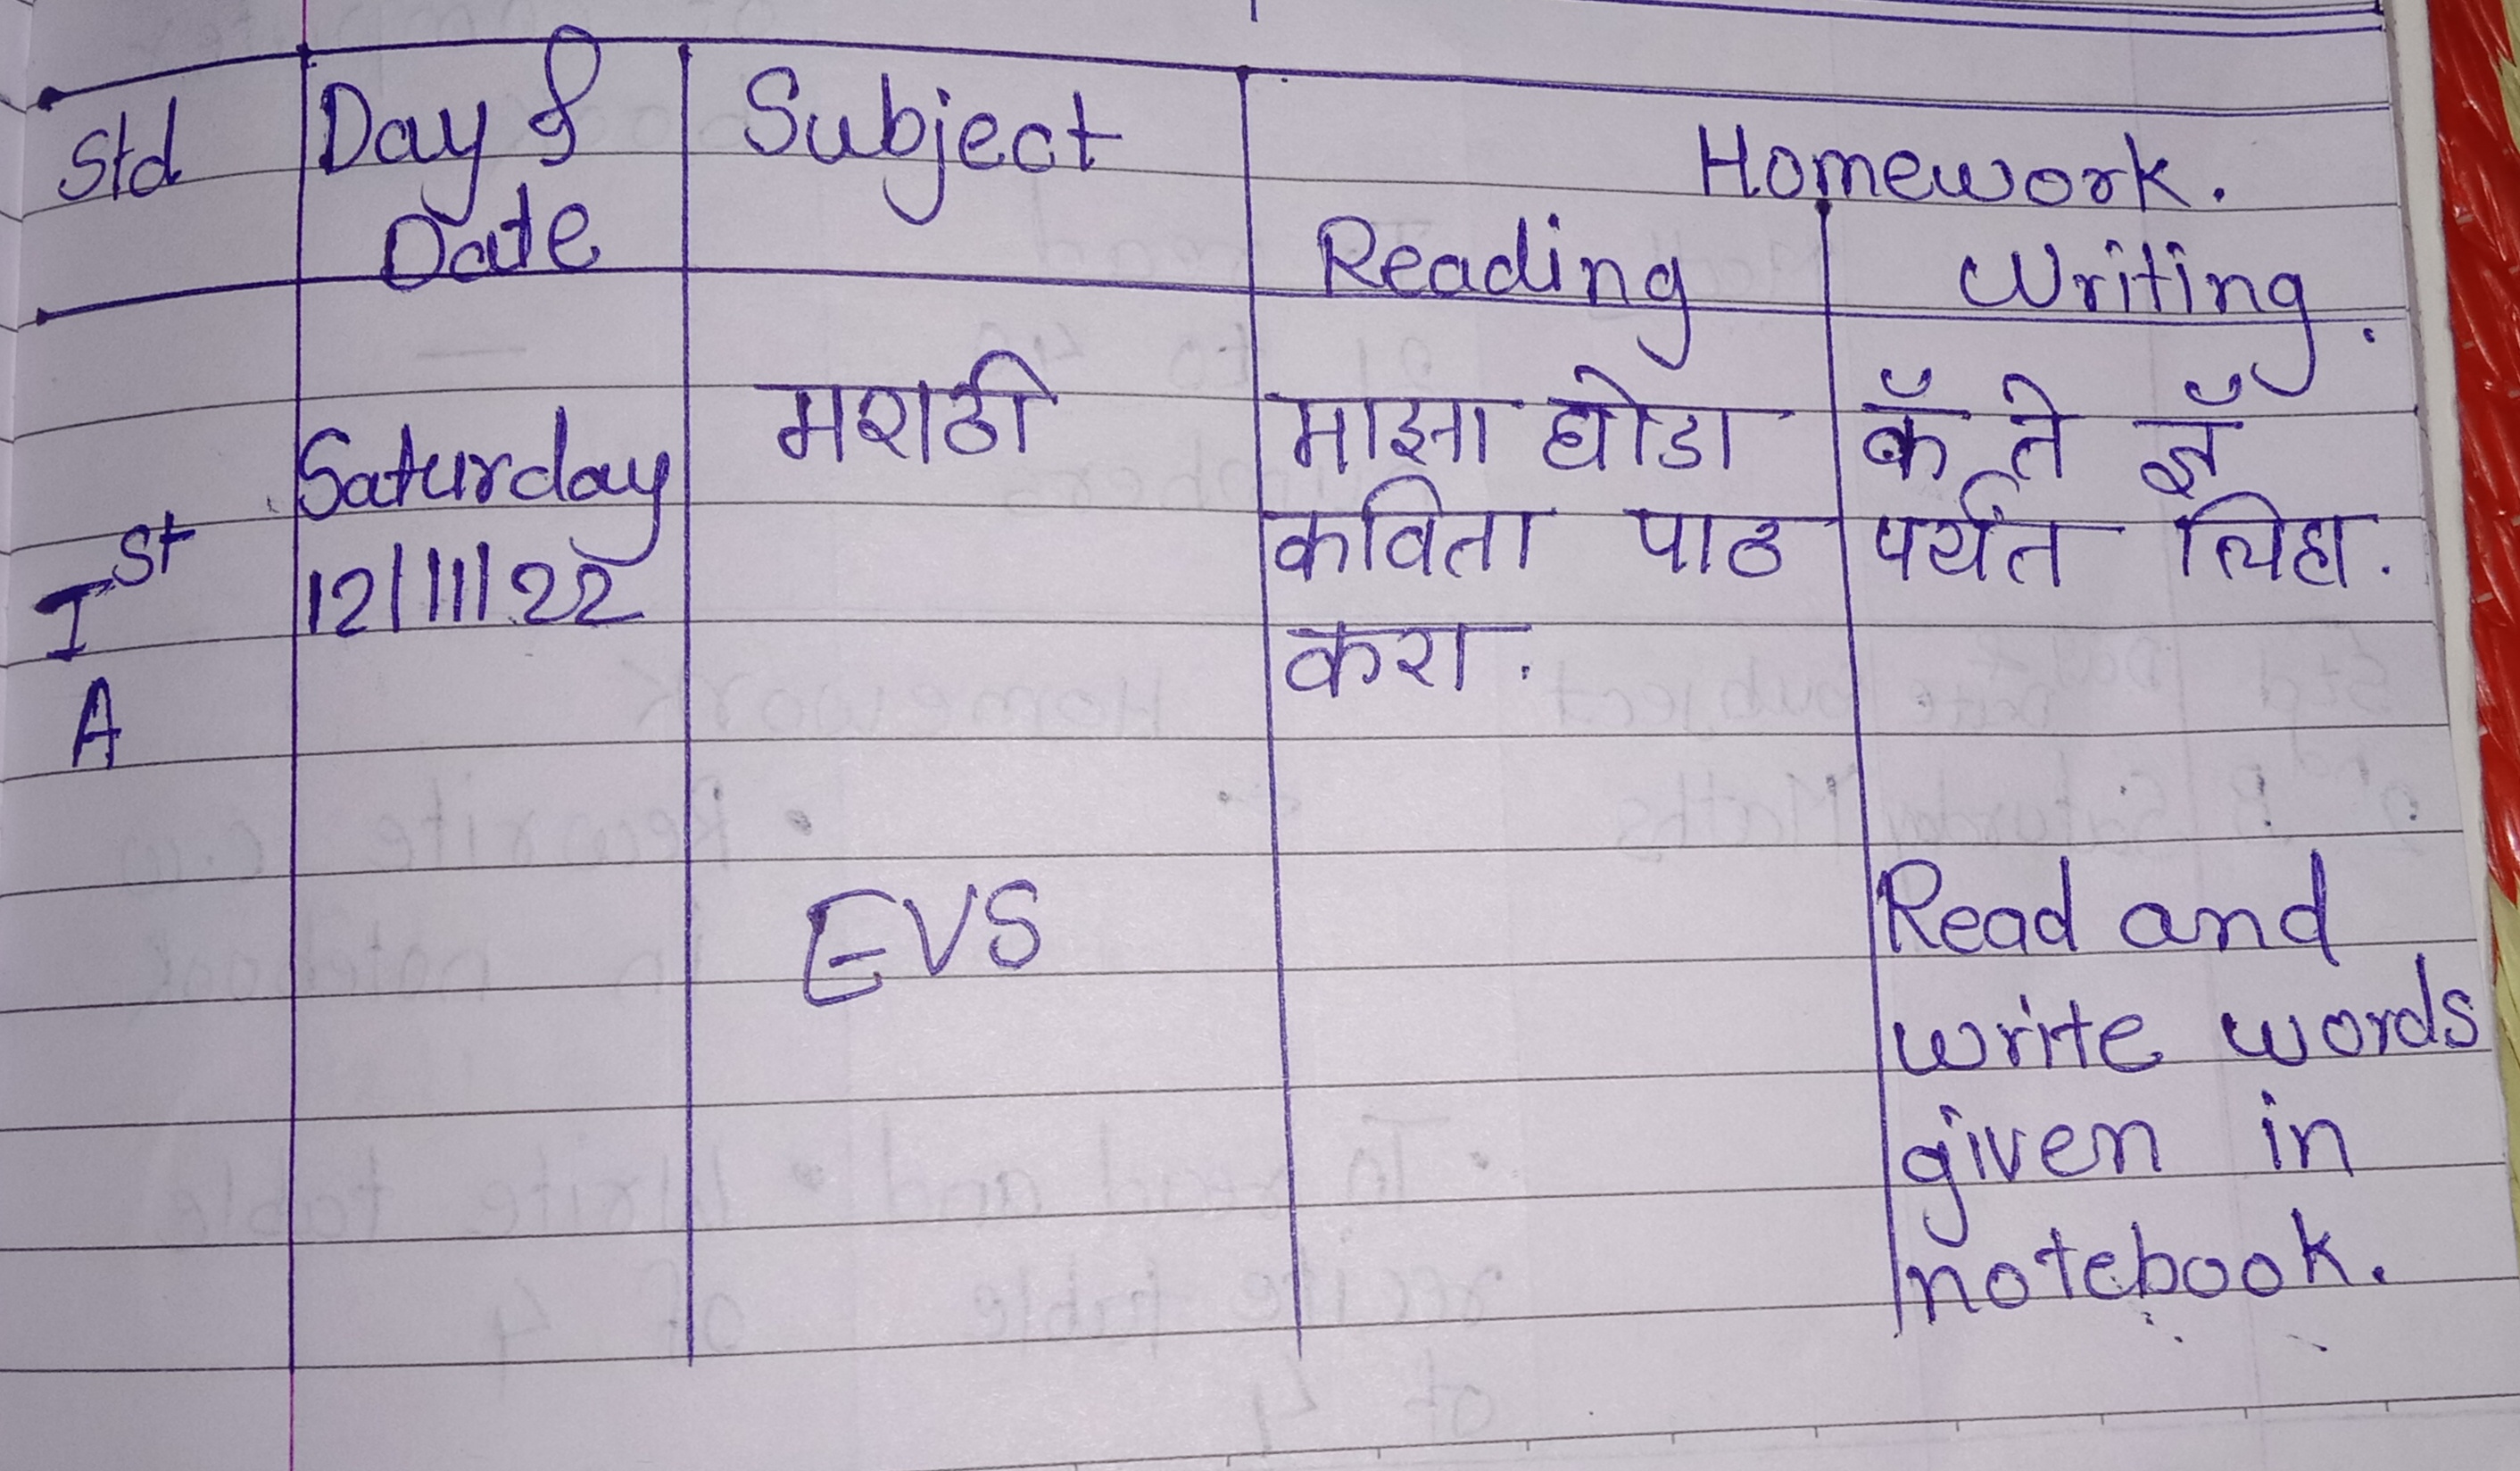 Std Day & Subject Homework.
Date Reading Writing.
मराठी माझा घोडा कॅ ते ज्ञॅ
Saturday कविता पाठ पर्यंत लिहा.
Ist 12/11/22 करा.
A
EVS Read and
write words
given in
notebook.